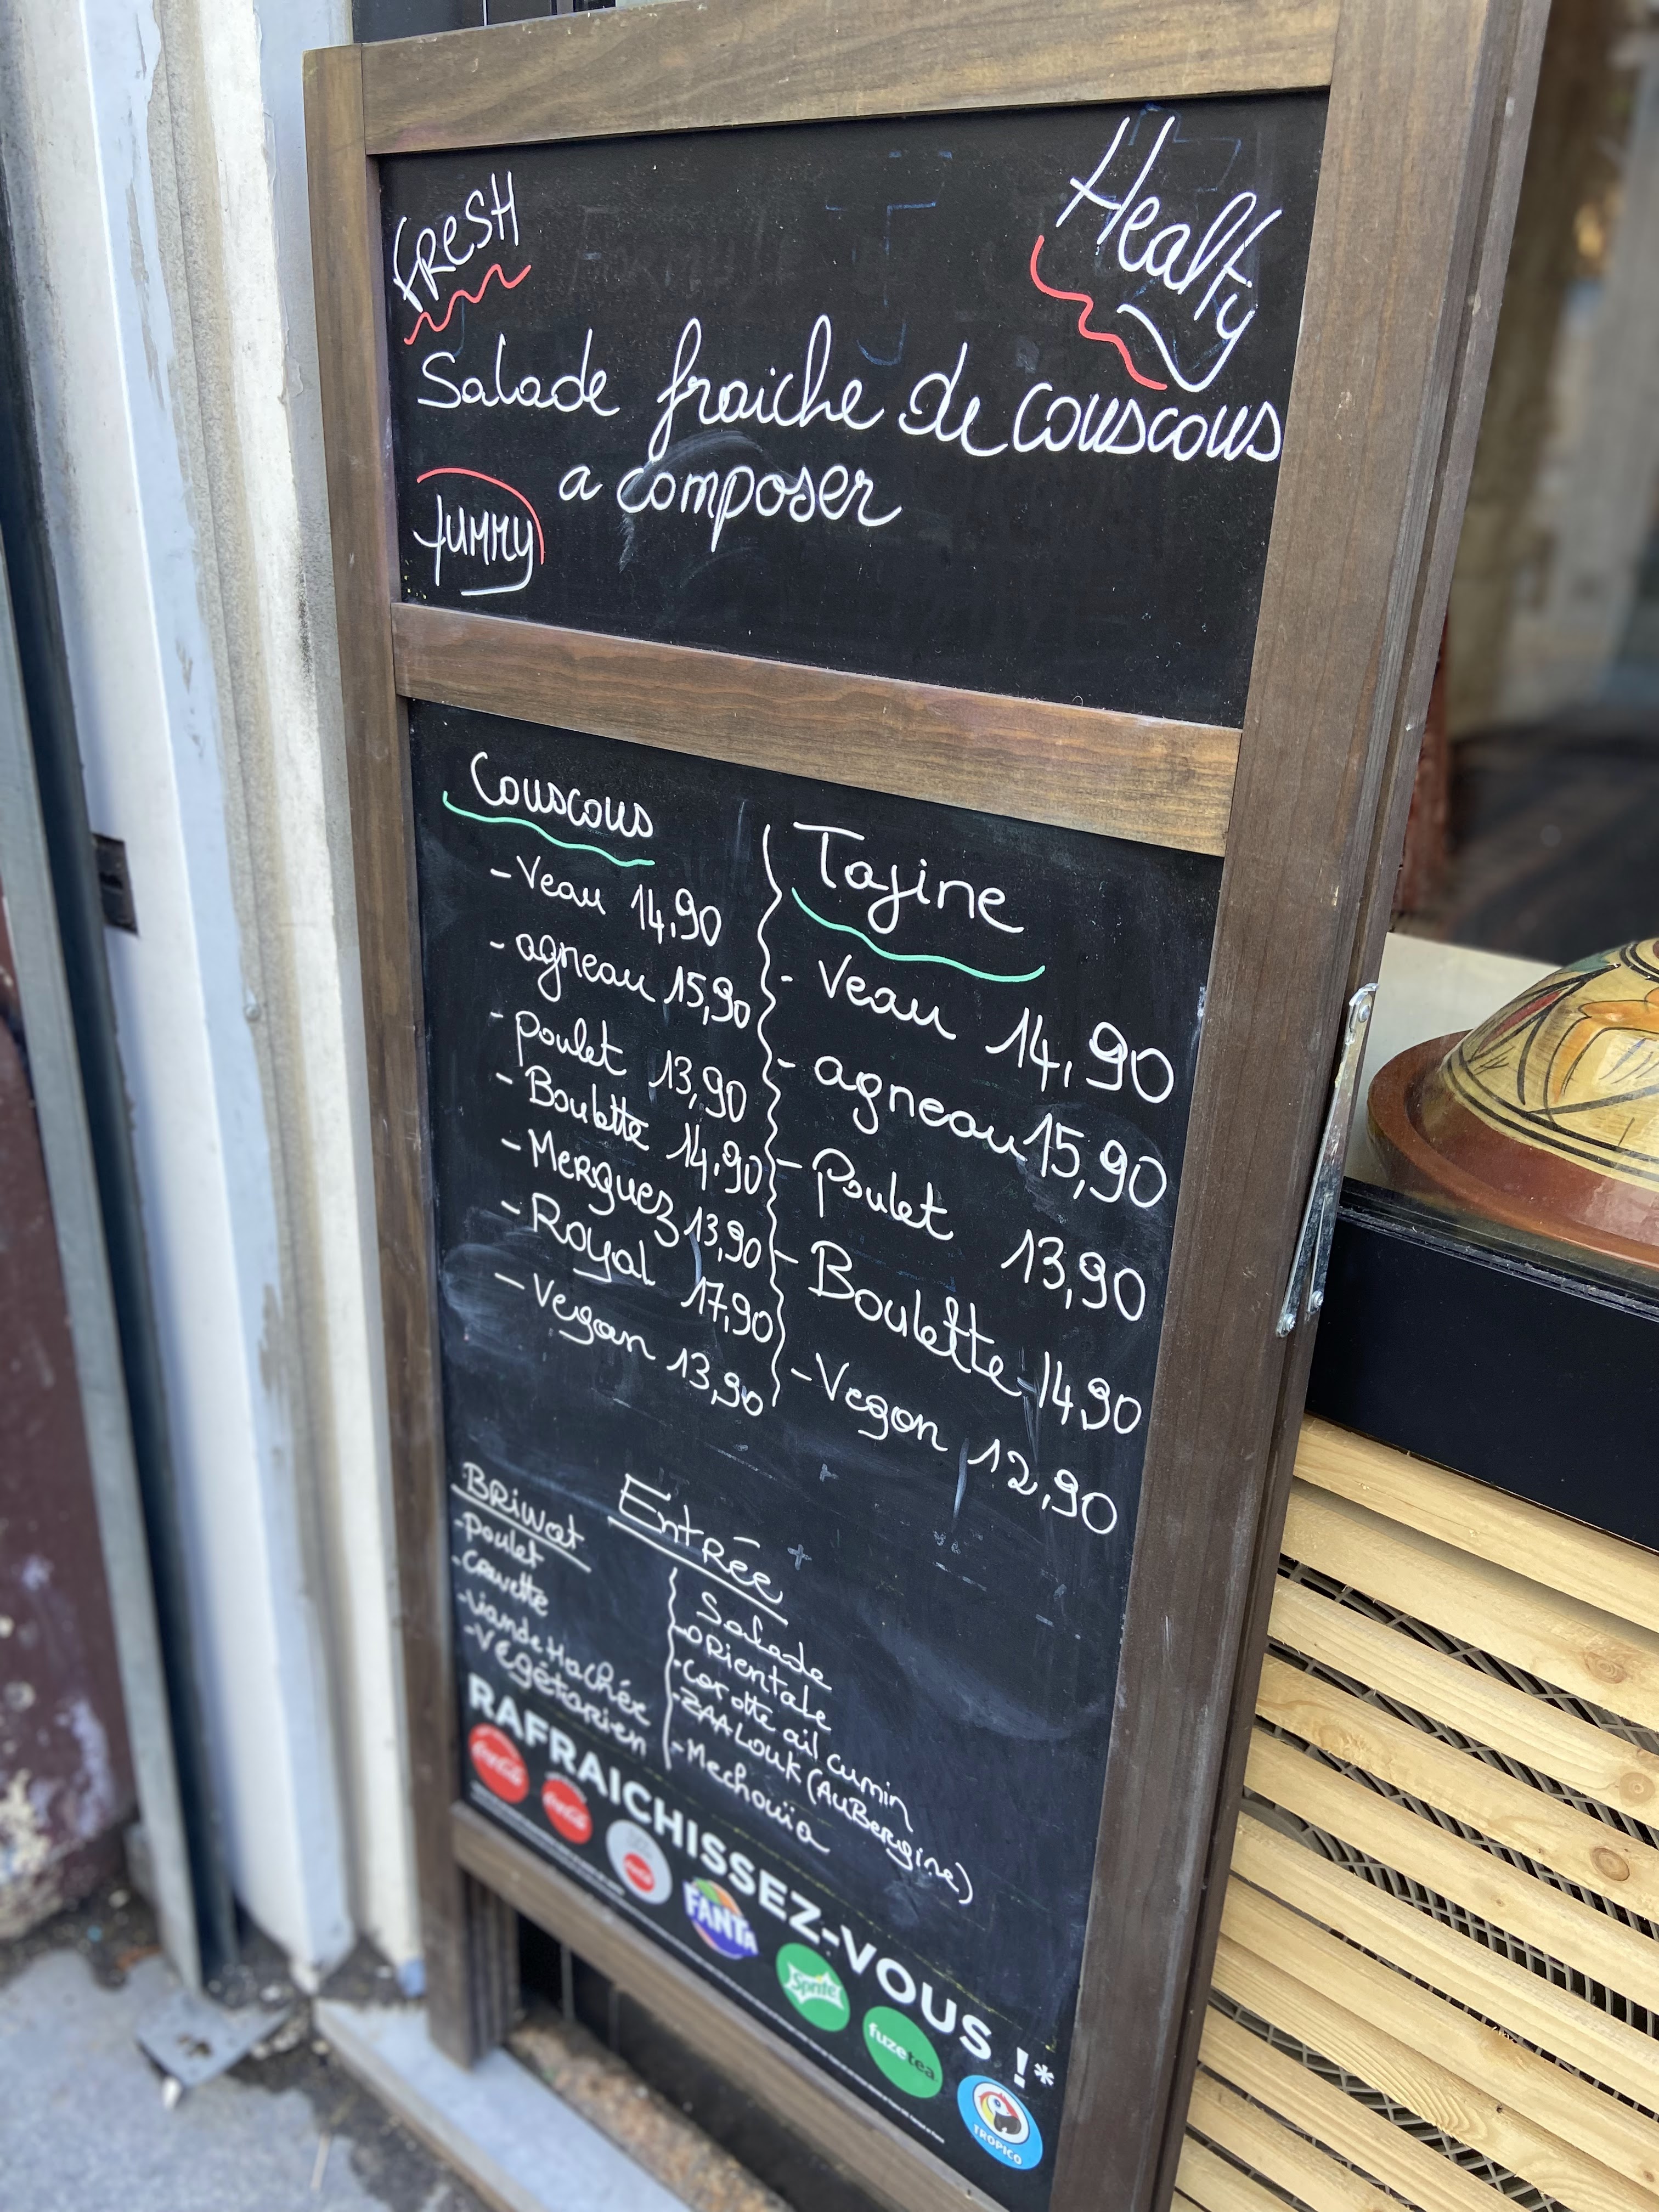 FRESH
Healty
Salade fraiche de couscous
a composer
Yummy
Couscous
- Veau 14,90
- agneau 15,90
- poulet 13,90
- Boulette 14,90
- Merguez 13,90
- Royal 17,90
- Vegan 13,90
Tajine
- Veau 14,90
- agneau 15,90
- Poulet 13,90
- Boulette 14,90
- Vegan 12,90
Entrée
BRiWat
- Poulet
- Crevette
- Viande Hachée
- Végétarien
Salade
- ORientale
- Carotte ail cumin
- ZAALOUK (AuBergine)
- Mechouia
RAFRAICHISSEZ-VOUS !*
Coca-Cola
Coca-Cola
FANTA
Sprite
fuzetea
TROPICO